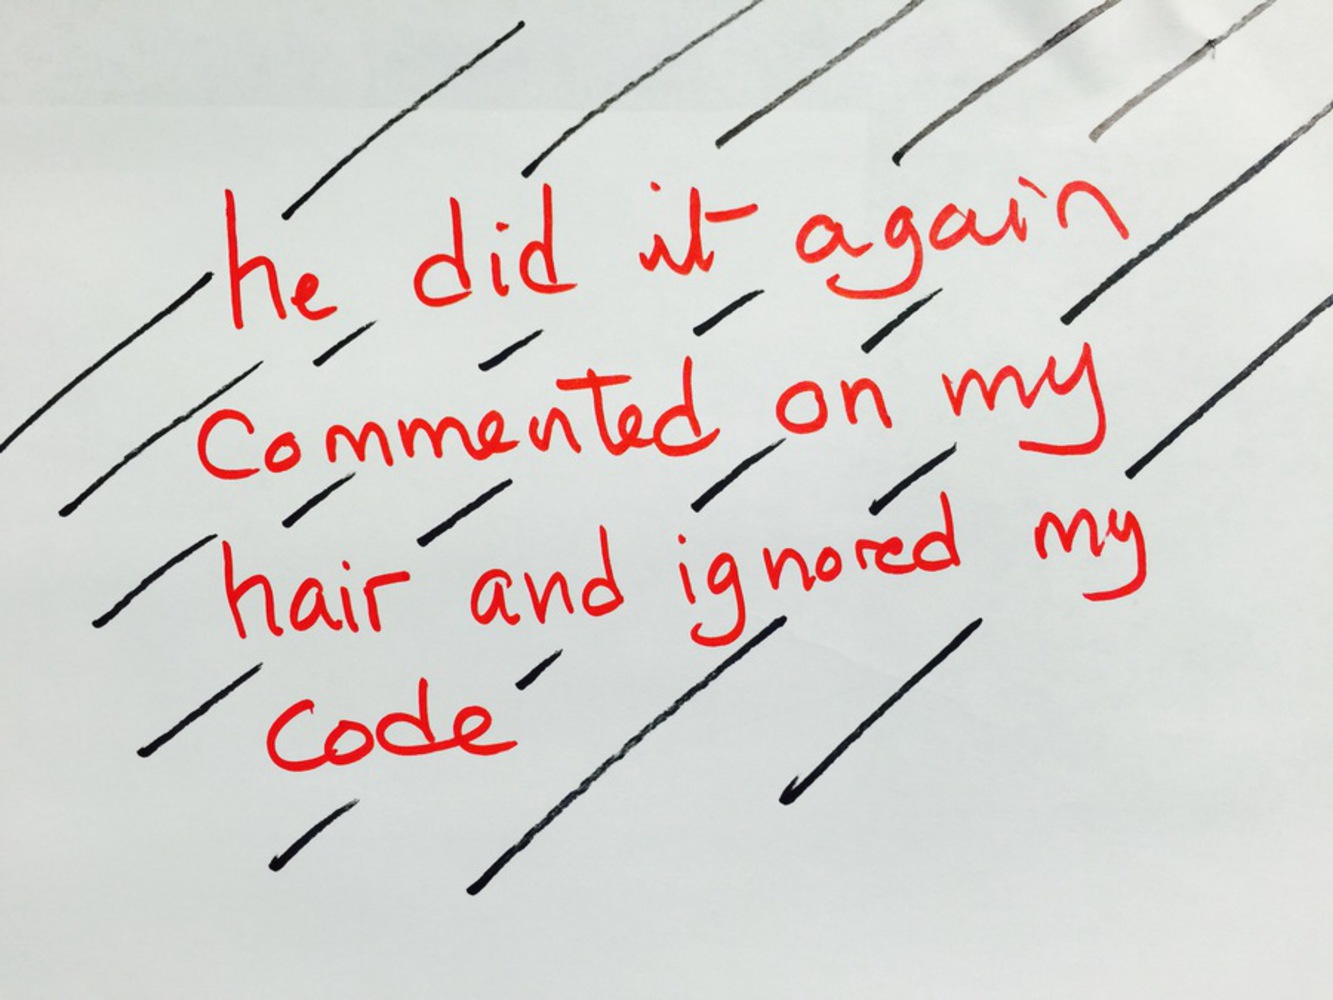 he did it again
commented on my
hair and ignored my
code